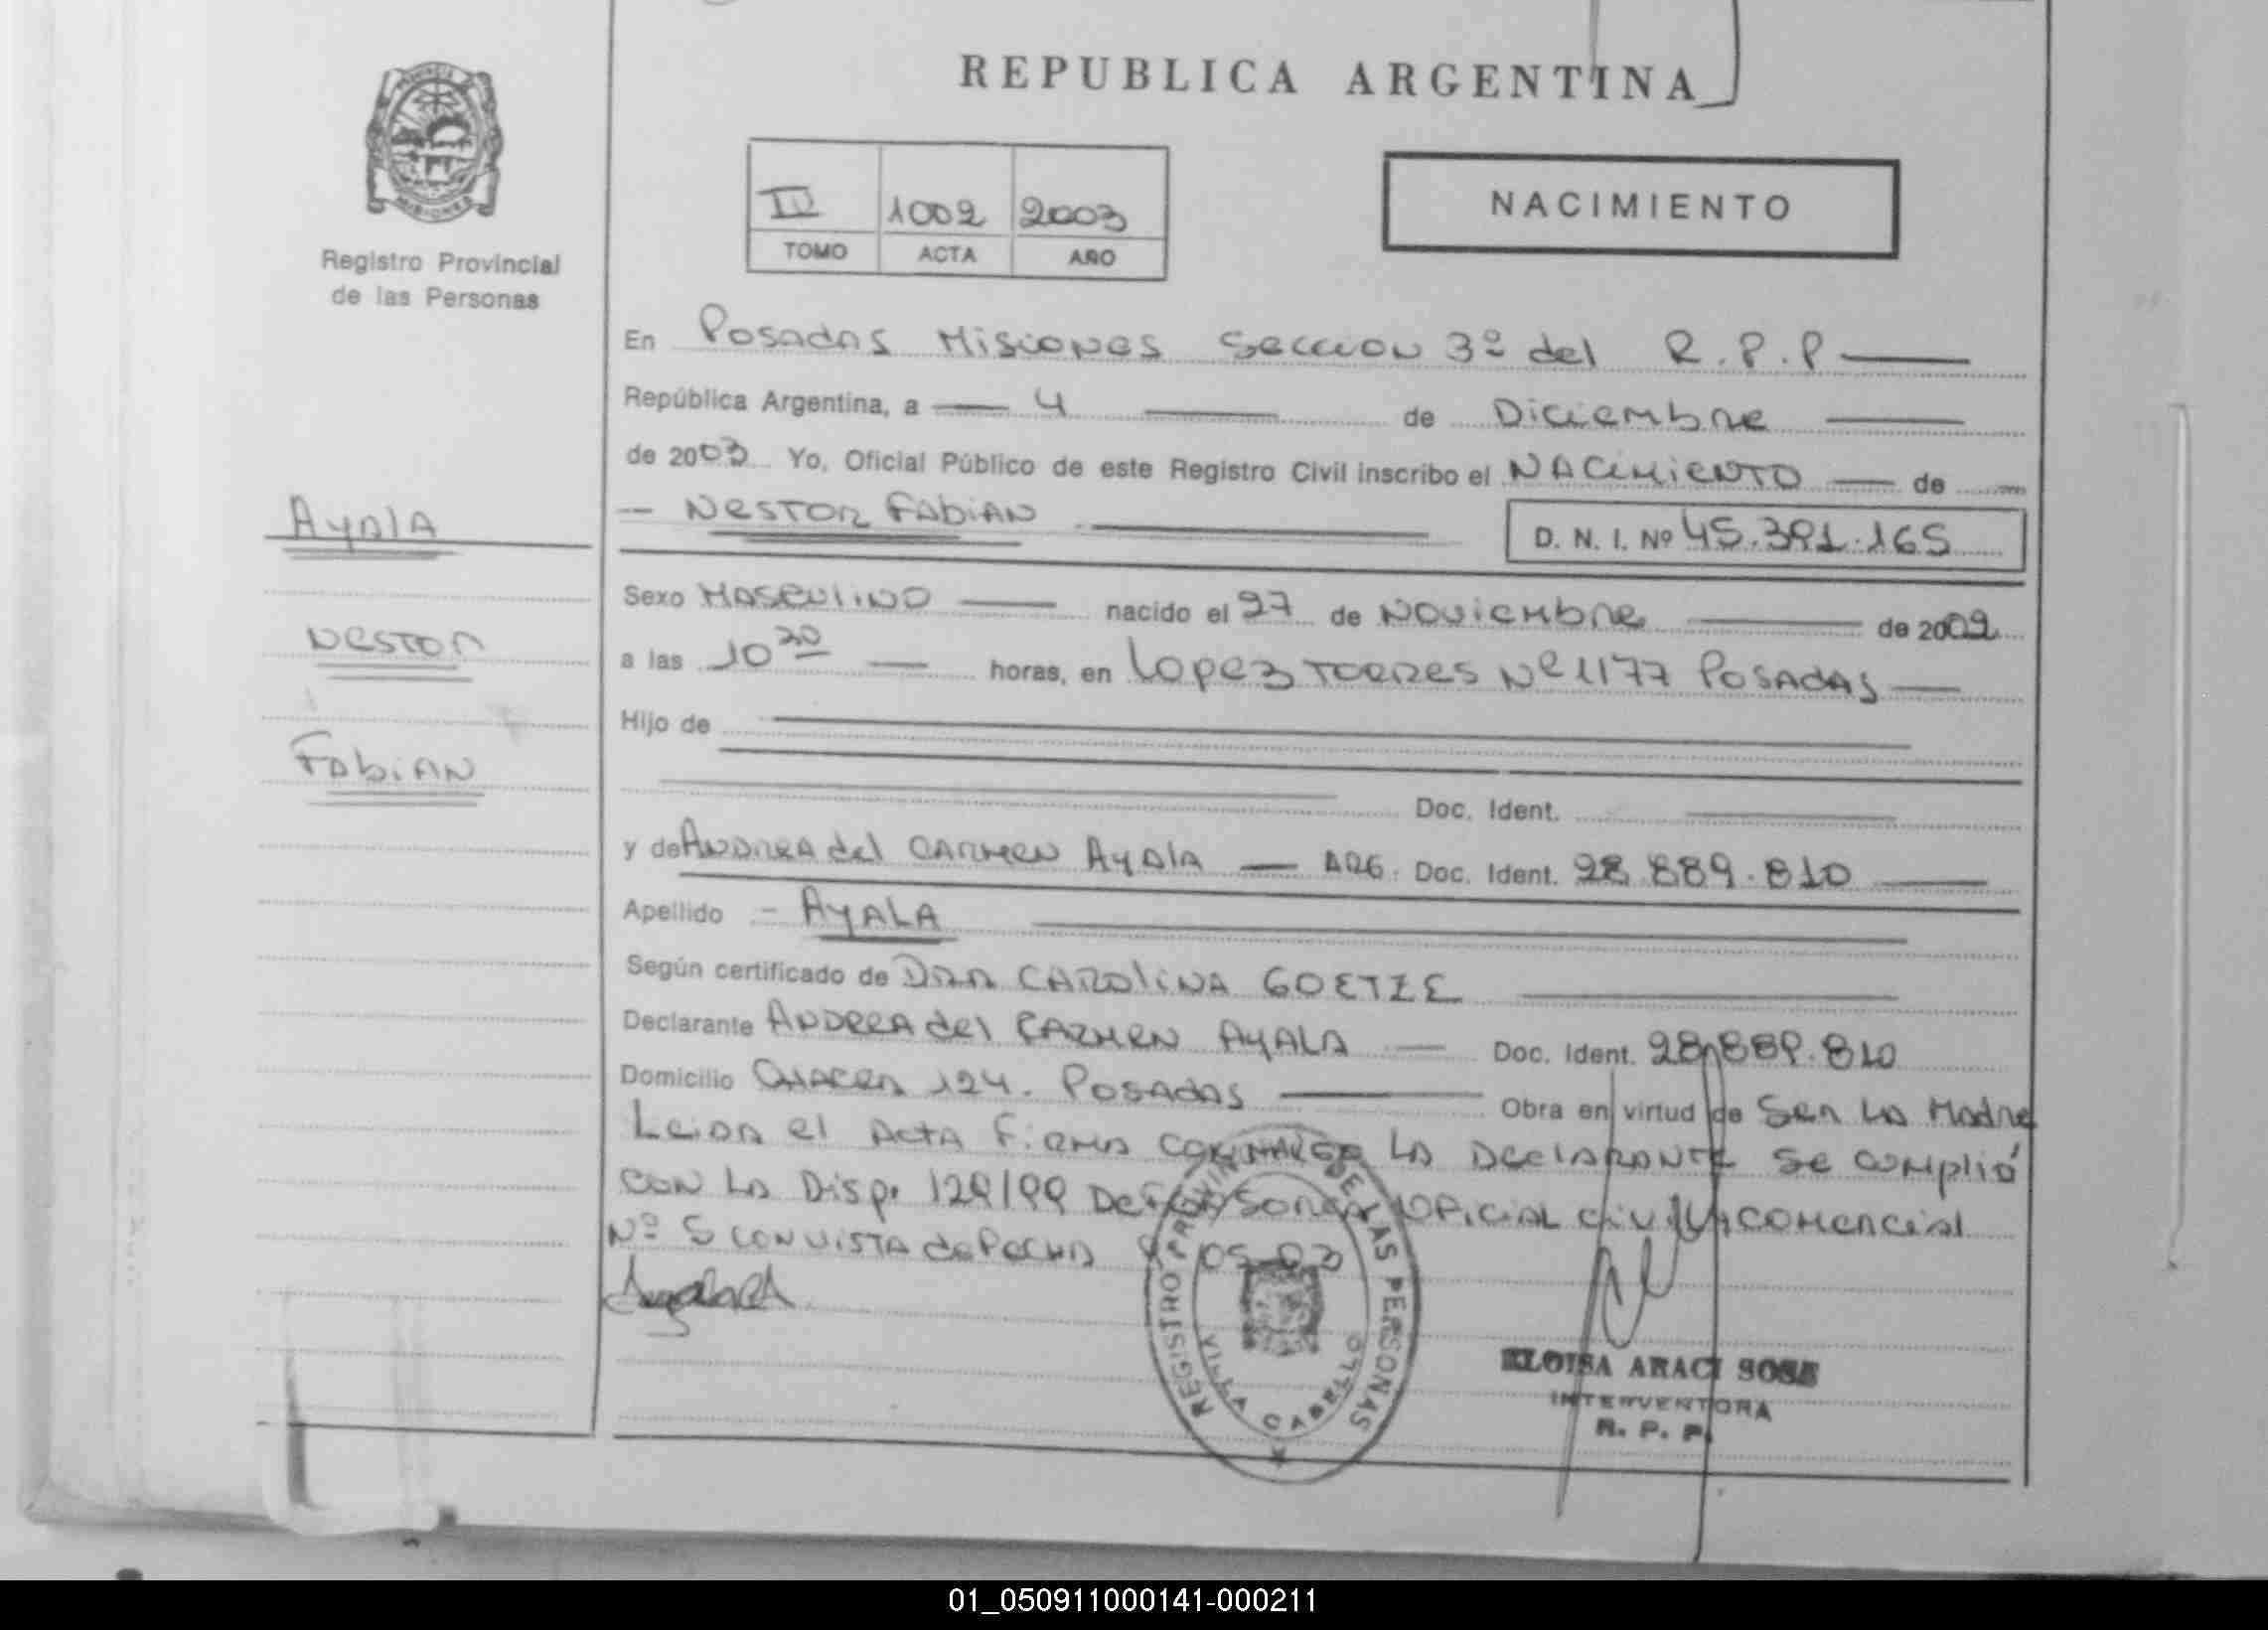 REPUBLICA ARGENTINA
MISIONES
Registro Provincial
de las Personas
II 1002 2003
TOMO ACTA AÑO
NACIMIENTO
En Posadas Misiones Seccion 3º del R.P.P
República Argentina, a 4 de Diciembre
de 2003 Yo, Oficial Público de este Registro Civil inscribo el NACIMIENTO de
Nestor Fabian D. N. I. Nº 45.391.165
Ayala
Nestor
Fabian
Sexo Masculino nacido el 27 de Noviembre de 2002
a las 10 30 horas, en Lopez Torres Nº 1177 Posadas
Hijo de
Doc. Ident.
y de Andrea del Carmen Ayala ARG. Doc. Ident. 28.889.810
Apellido - AYALA
Según certificado de Dra Carolina GOETZE
Declarante Andrea del Carmen AYALA Doc. Ident. 28.889.810
Domicilio Chacra 124. Posadas Obra en virtud de Ser La Madre
Leida el Acta Firma conmigo La Declarante se cumplió
con La Disp. 129/99 Defensoria Oficial Civil y Comercial
Nº 5 con vista de Fecha 05-03
REGISTRO PROVINCIAL DE LAS PERSONAS
VILLA CABELLO
ELOISA ARACI SOSA
INTERVENTORA
R. P. P.
01_050911000141-000211